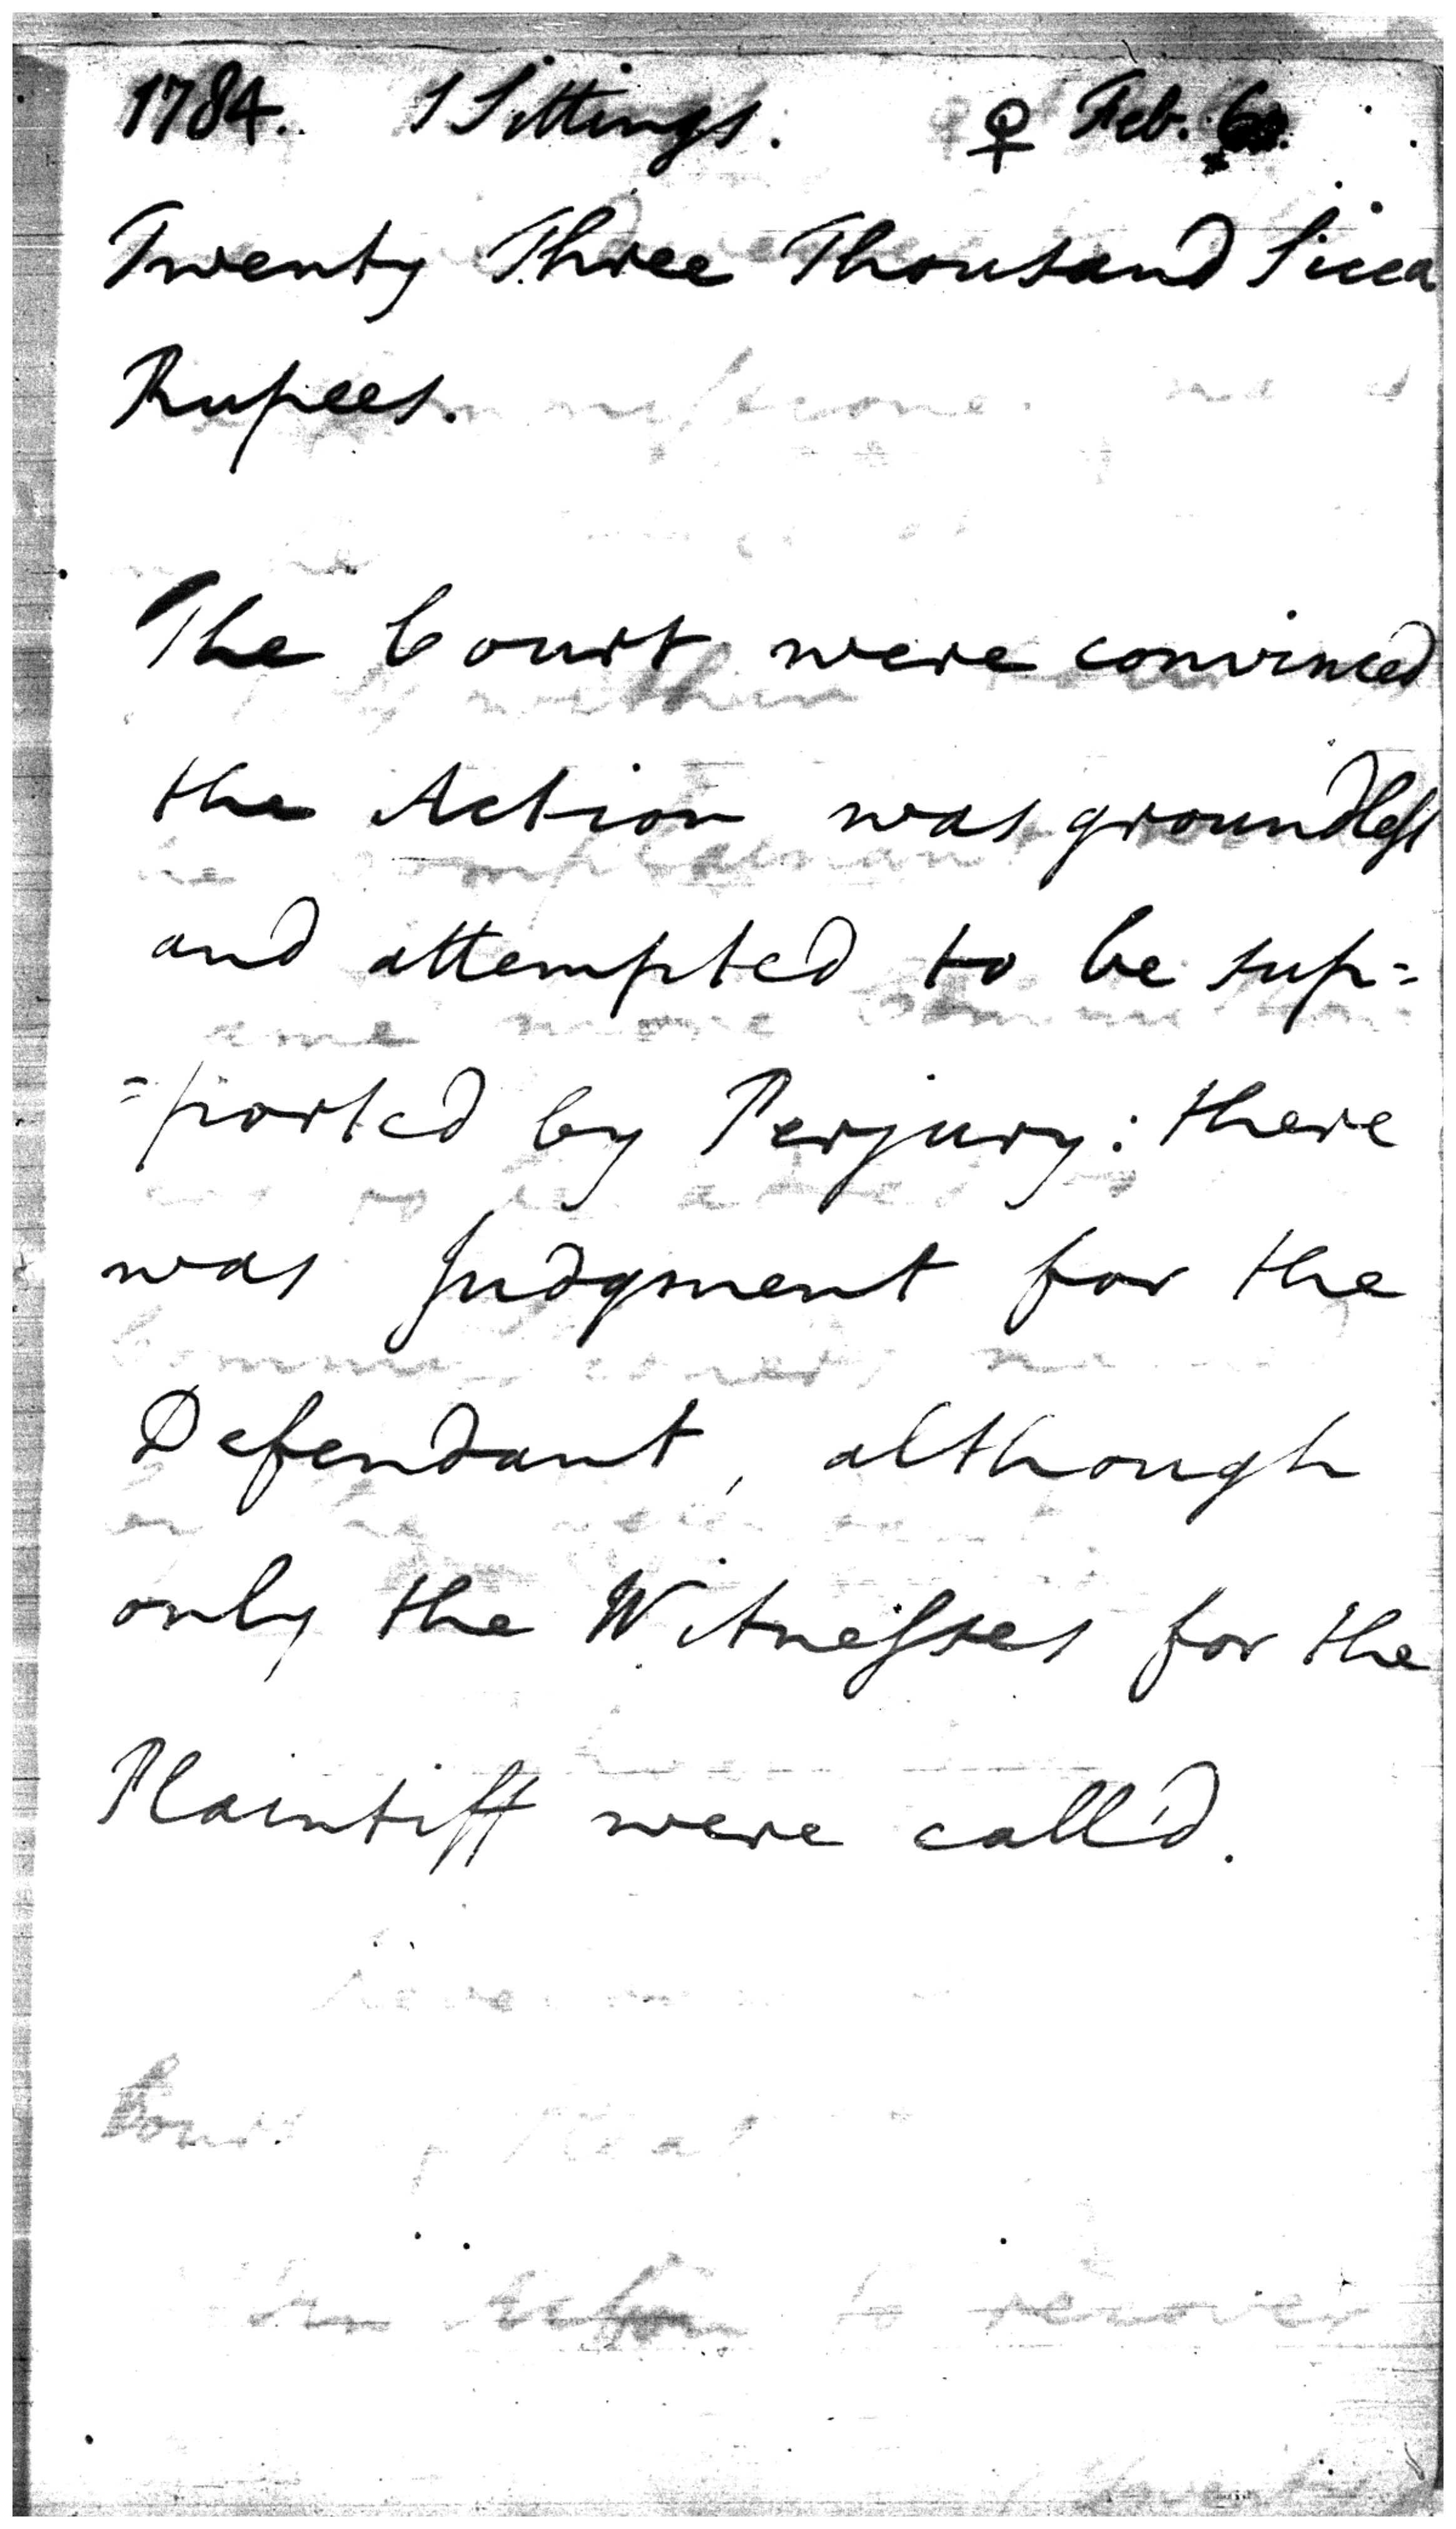 1784. 1 Sittings. ♀ Feb. 6.
Twenty Three Thousand Sicca
Rupees.
The Court were convinced
the Action was groundless
and attempted to be sup=
=ported by Perjury: there
was Judgment for the
Defendant, although
only the Witnesses for the
Plaintiff were call'd.